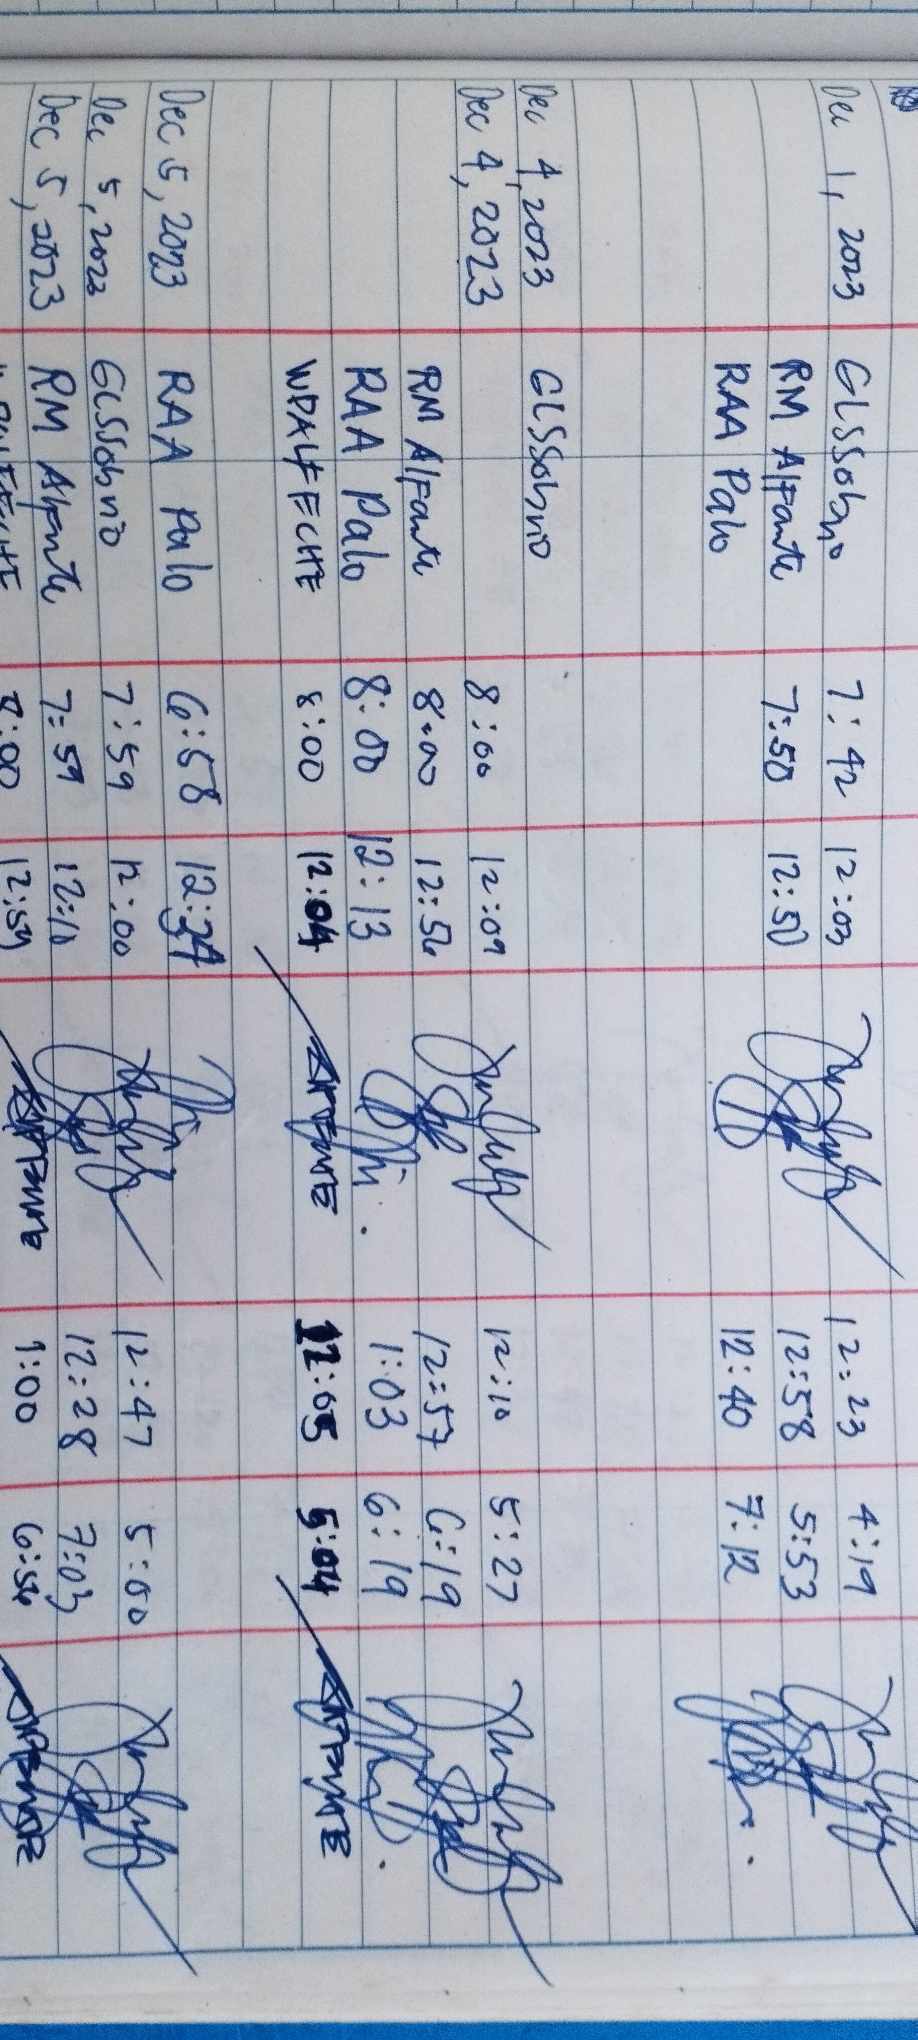 Dec 1, 2023 GLSSobrio 7:42 12:03 12:23 4:19
RM Alfante 7:50 12:50 12:58 5:53
RAA Palo 12:40 7:12
Dec 4, 2023 GLSSobrio
Dec 4, 2023 8:00 12:09 12:10 5:27
RM Alfante 8:00 12:56 12:57 6:19
RAA Palo 8:00 12:13 1:03 6:19
WPALFECHE 8:00 12:04 12:05 5:04
Dec 5, 2023 RAA Palo 6:58 12:34
Dec 5, 2023 GLSSobrio 7:59 12:00 12:47 5:00
Dec 5, 2023 RM Alfante 7:59 12:10 12:28 7:03
8:00 12:59 1:00 6:56